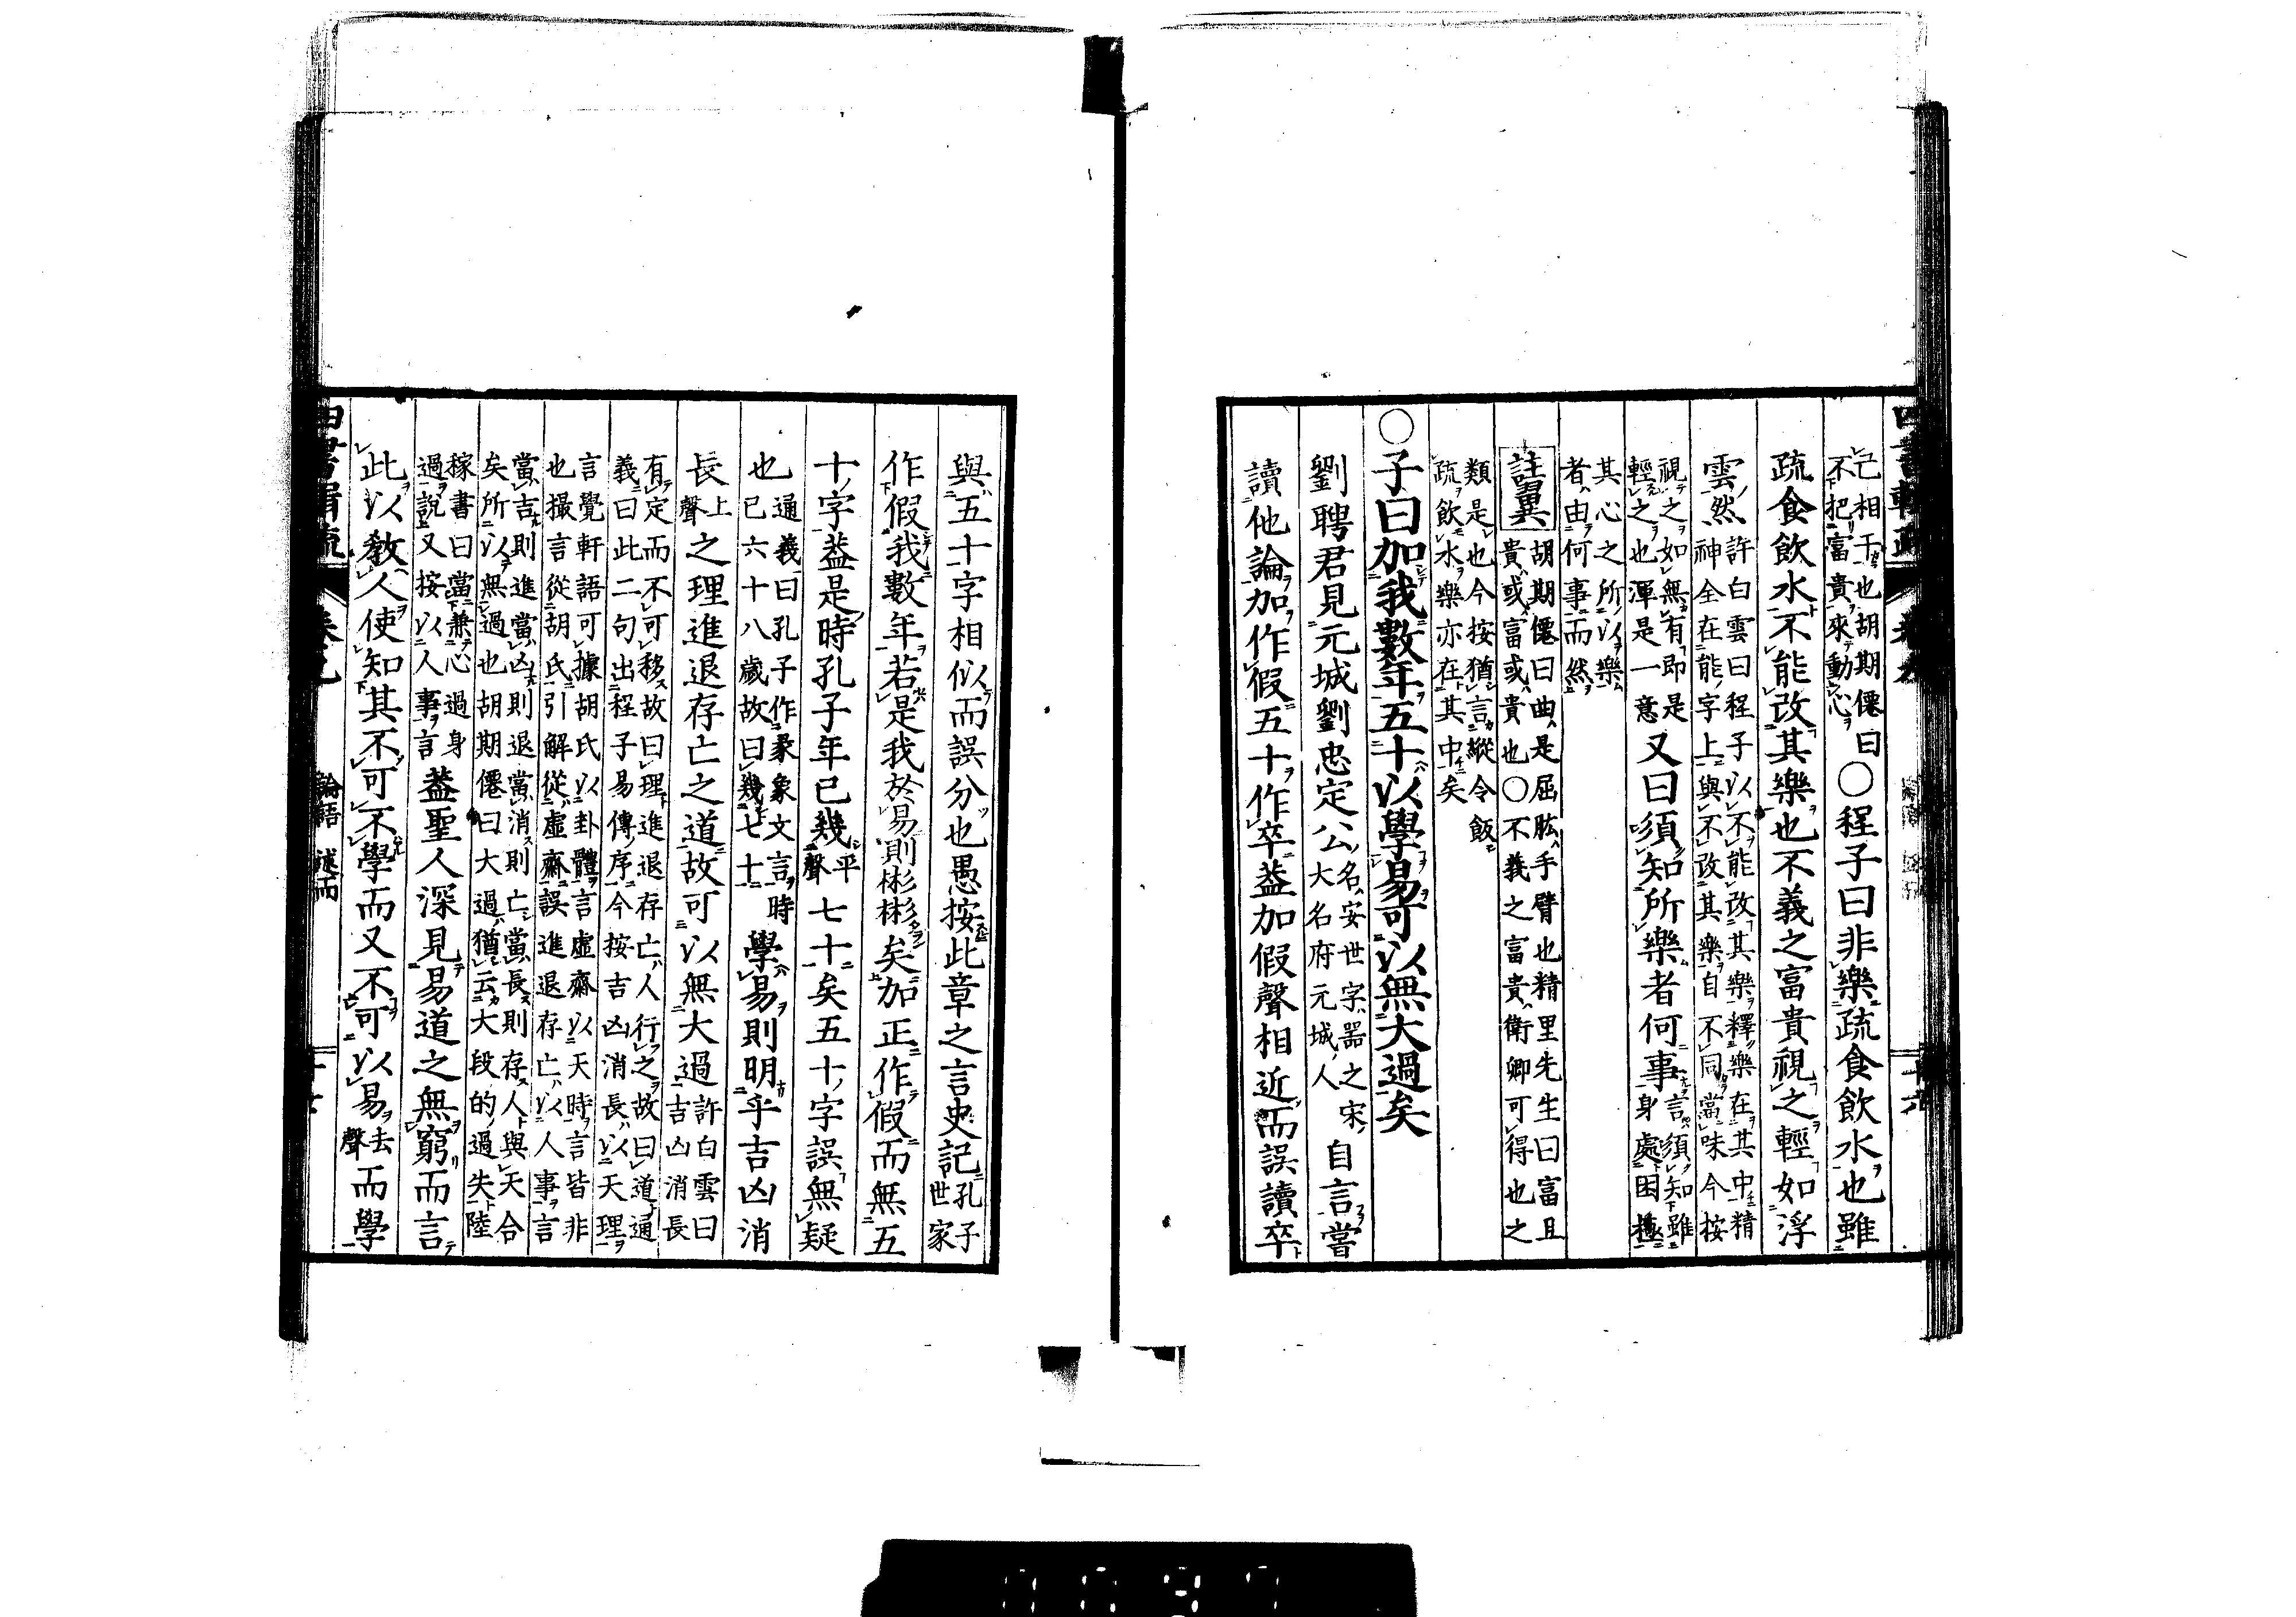 己相干也胡期僊曰
不把富貴來動心
○程子曰非樂疏食飲水也雖
疏食飲水不能改其樂也不義之富貴視之輕如浮
雲然
許白雲曰程子以不能改其樂釋樂在其中精
神全在能字上與不改其樂自不同當味今按
視之如無有即是
輕之也渾是一意
又曰須知所樂者何事
言須知雖
身處困極
其心之所以樂
者由何事而然
註翼
胡期僊曰曲是屈肱手臂也精里先生曰富且
貴或富或貴也○不義之富貴衛卿可得也之
類是也今按猶言縱令飯
疏飲水樂亦在其中矣
○子曰加我數年五十以學易可以無大過矣
劉聘君見元城劉忠定公
名安世字器之宋
大名府元城人
自言嘗
讀他論加作假五十作卒葢加假聲相近而誤讀卒
與五十字相似而誤分也愚按此章之言史記
孔子
世家
作假我數年若是我於易則彬彬矣加正作假而無五
十字葢是時孔子年已幾
平
聲
七十矣五十字誤無疑
也
通義曰孔子作彖象文言時
已六十八歲故曰幾七十
學易則明乎吉凶消
長
上
聲
之理進退存亡之道故可以無大過
許白雲曰
吉凶消長
有定而不可移故曰理進退存亡人行之故曰道通
義曰此二句出程子易傳序今按吉凶消長以天理
言覺軒語可據胡氏以卦體言虛齋以天時言皆非
也撮言從胡氏引解從虛齋誤進退存亡以人事言
當吉則進當凶則退當消則亡當長則存人與天合
矣所以無過也胡期僊曰大過猶云大段的過失陸
稼書曰當兼心過身
過說又按以人事言
葢聖人深見易道之無窮而言
此以敎人使知其不可不學而又不可以易
去
聲
而學
論語 述而